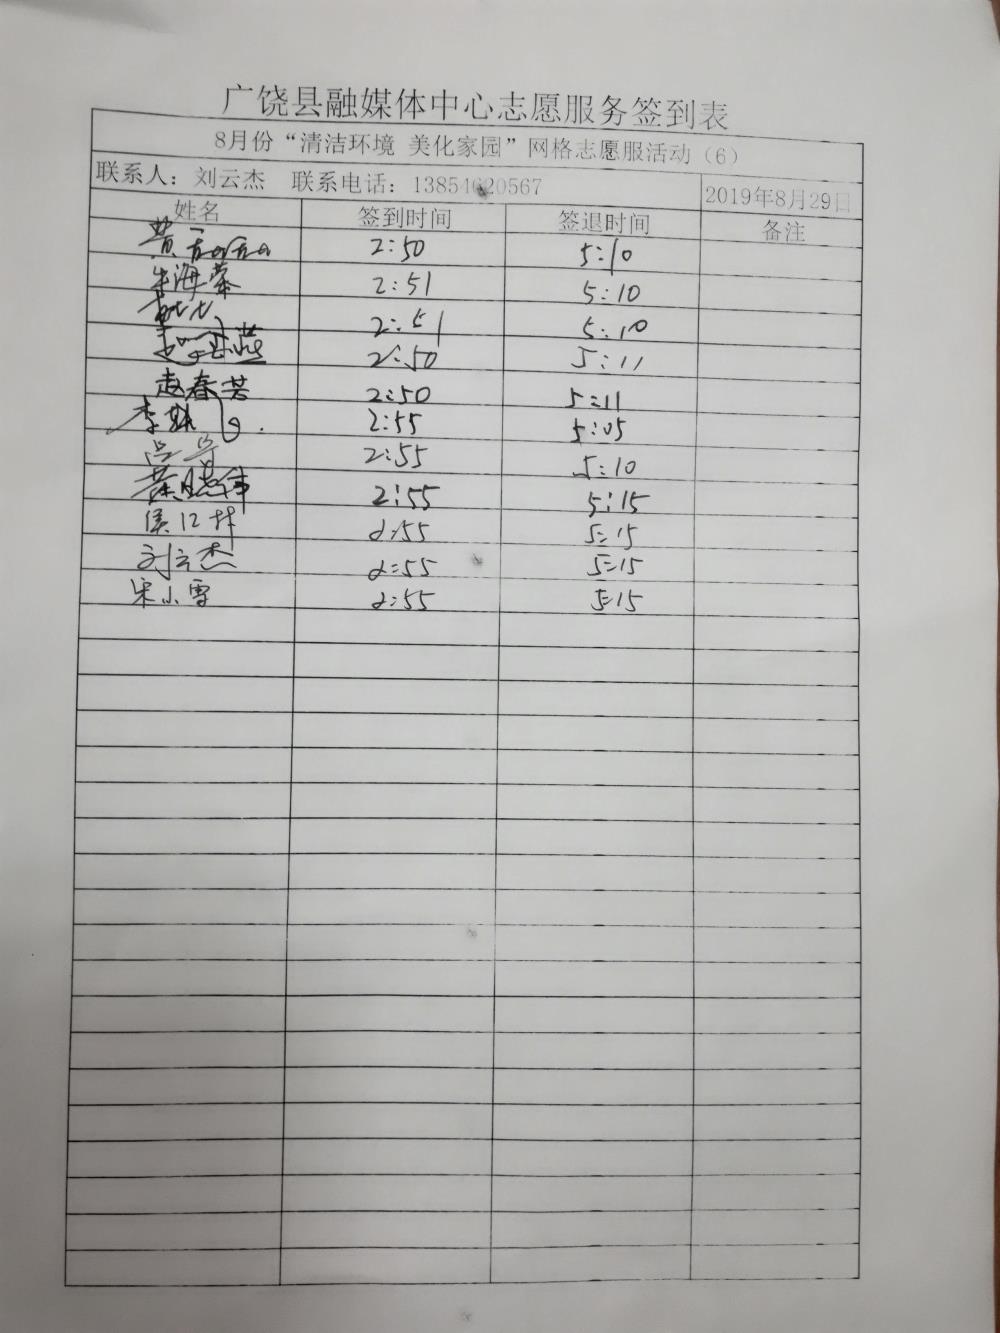 广饶县融媒体中心志愿服务签到表
8月份“清洁环境 美化家园”网格志愿服活动（6）
联系人：刘云杰 联系电话：13854620567 2019年8月29日
姓名 签到时间 签退时间 备注
2:50 5:10
2:51 5:10
2:51 5:10
2:50 5:11
赵春芳 2:50 5:11
2:55 5:05
2:55 5:10
2:55 5:15
2:55 5:15
刘云杰 2:55 5:15
宋小雪 2:55 5:15